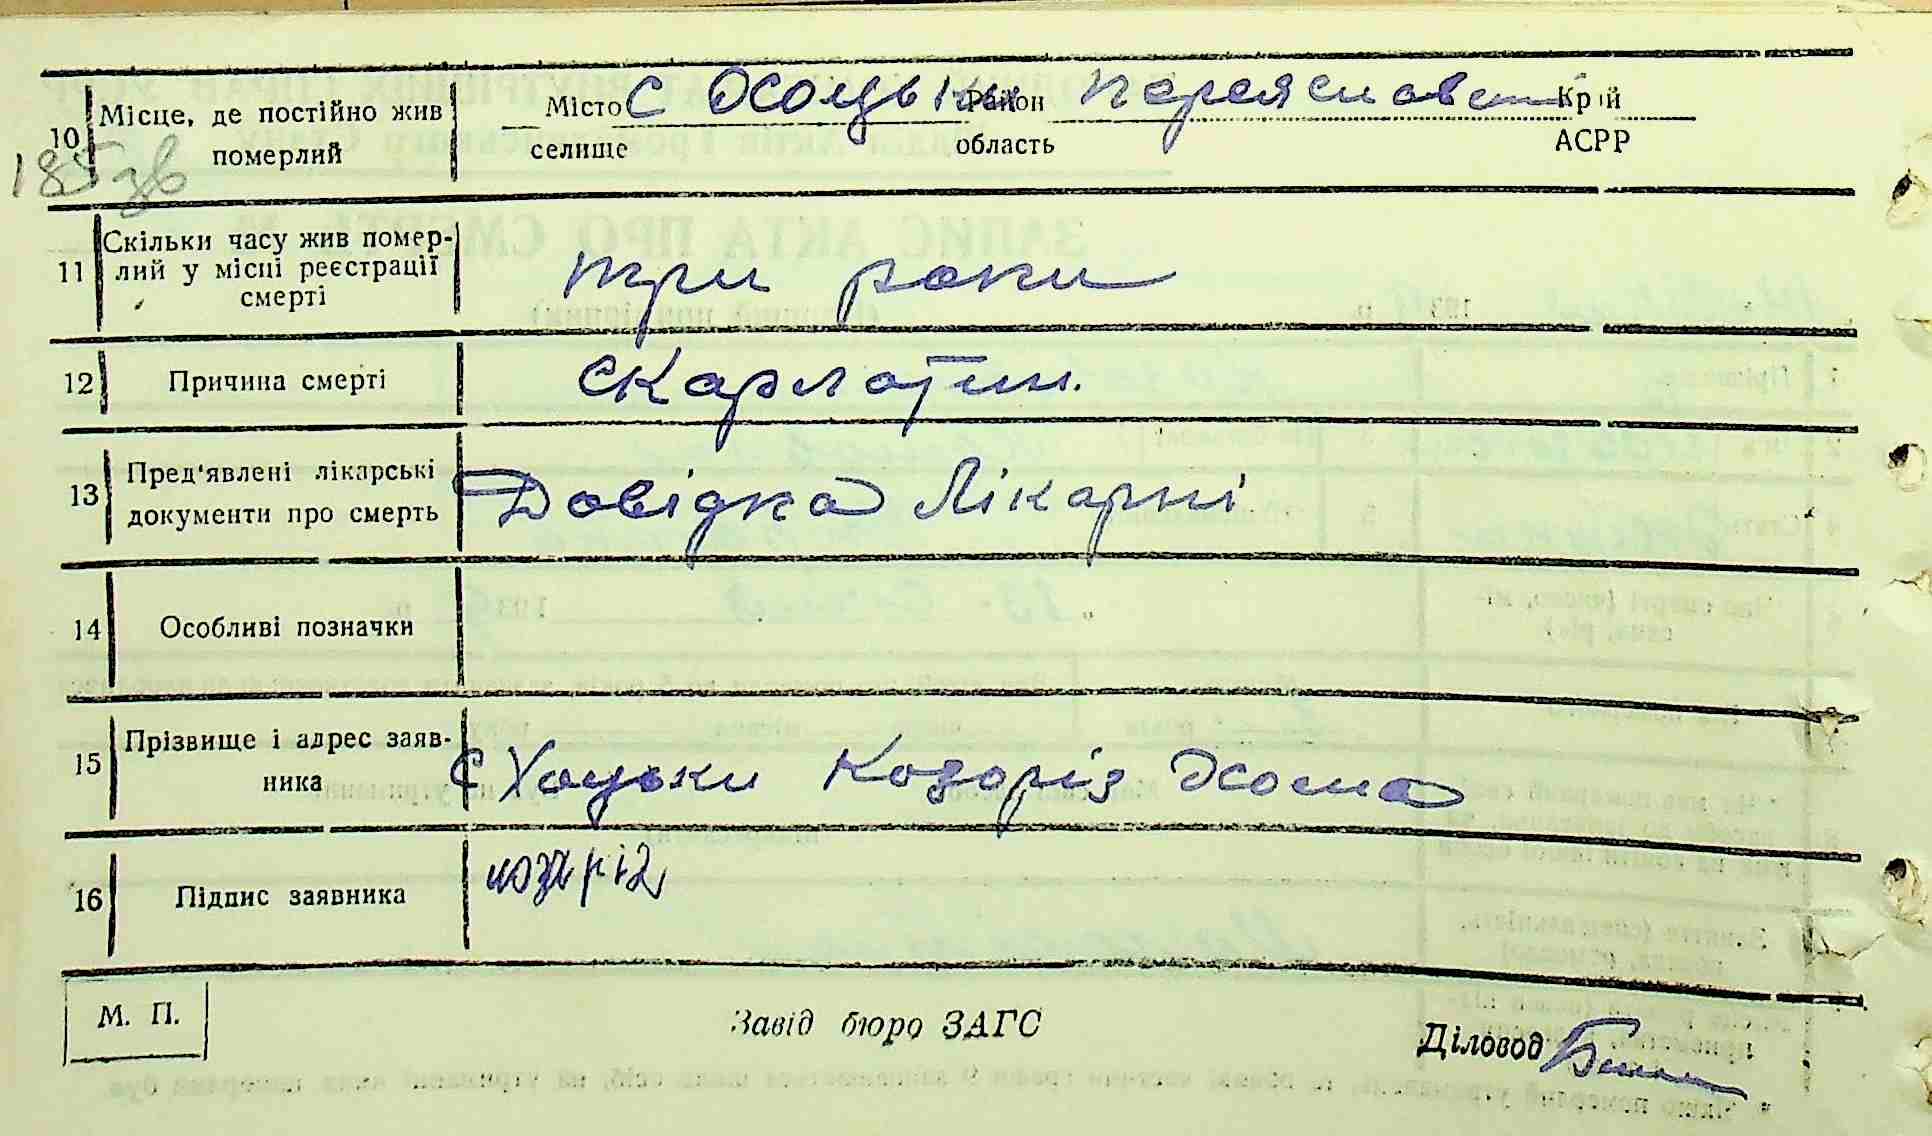 10 Місце, де постійно жив Місто с Хоцьки Район Переяславськ Край
померлий селище область АСРР
185 зв
11 Скільки часу жив помер-
лий у місці реєстрації три роки
смерті
12 Причина смерті скарлатин.
13 Пред'явлені лікарські
документи про смерть Довідка Лікарні
14 Особливі позначки
15 Прізвище і адрес заяв- с Хоцьки Козоріз Хома
ника
16 Підпис заявника козоріз
М. П. Завід бюро ЗАГС Діловод